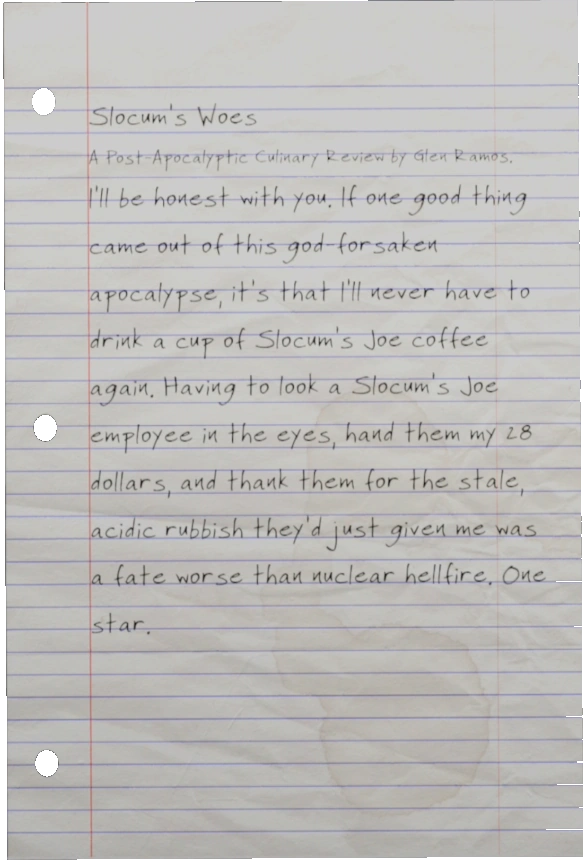 Slocum's Woes
A Post-Apocalyptic Culinary Review by Glen Ramos.
I'll be honest with you. If one good thing
came out of this god-forsaken
apocalypse, it's that I'll never have to
drink a cup of Slocum's Joe coffee
again. Having to look a Slocum's Joe
employee in the eyes, hand them my 28
dollars, and thank them for the stale,
acidic rubbish they'd just given me was
a fate worse than nuclear hellfire. One
star.